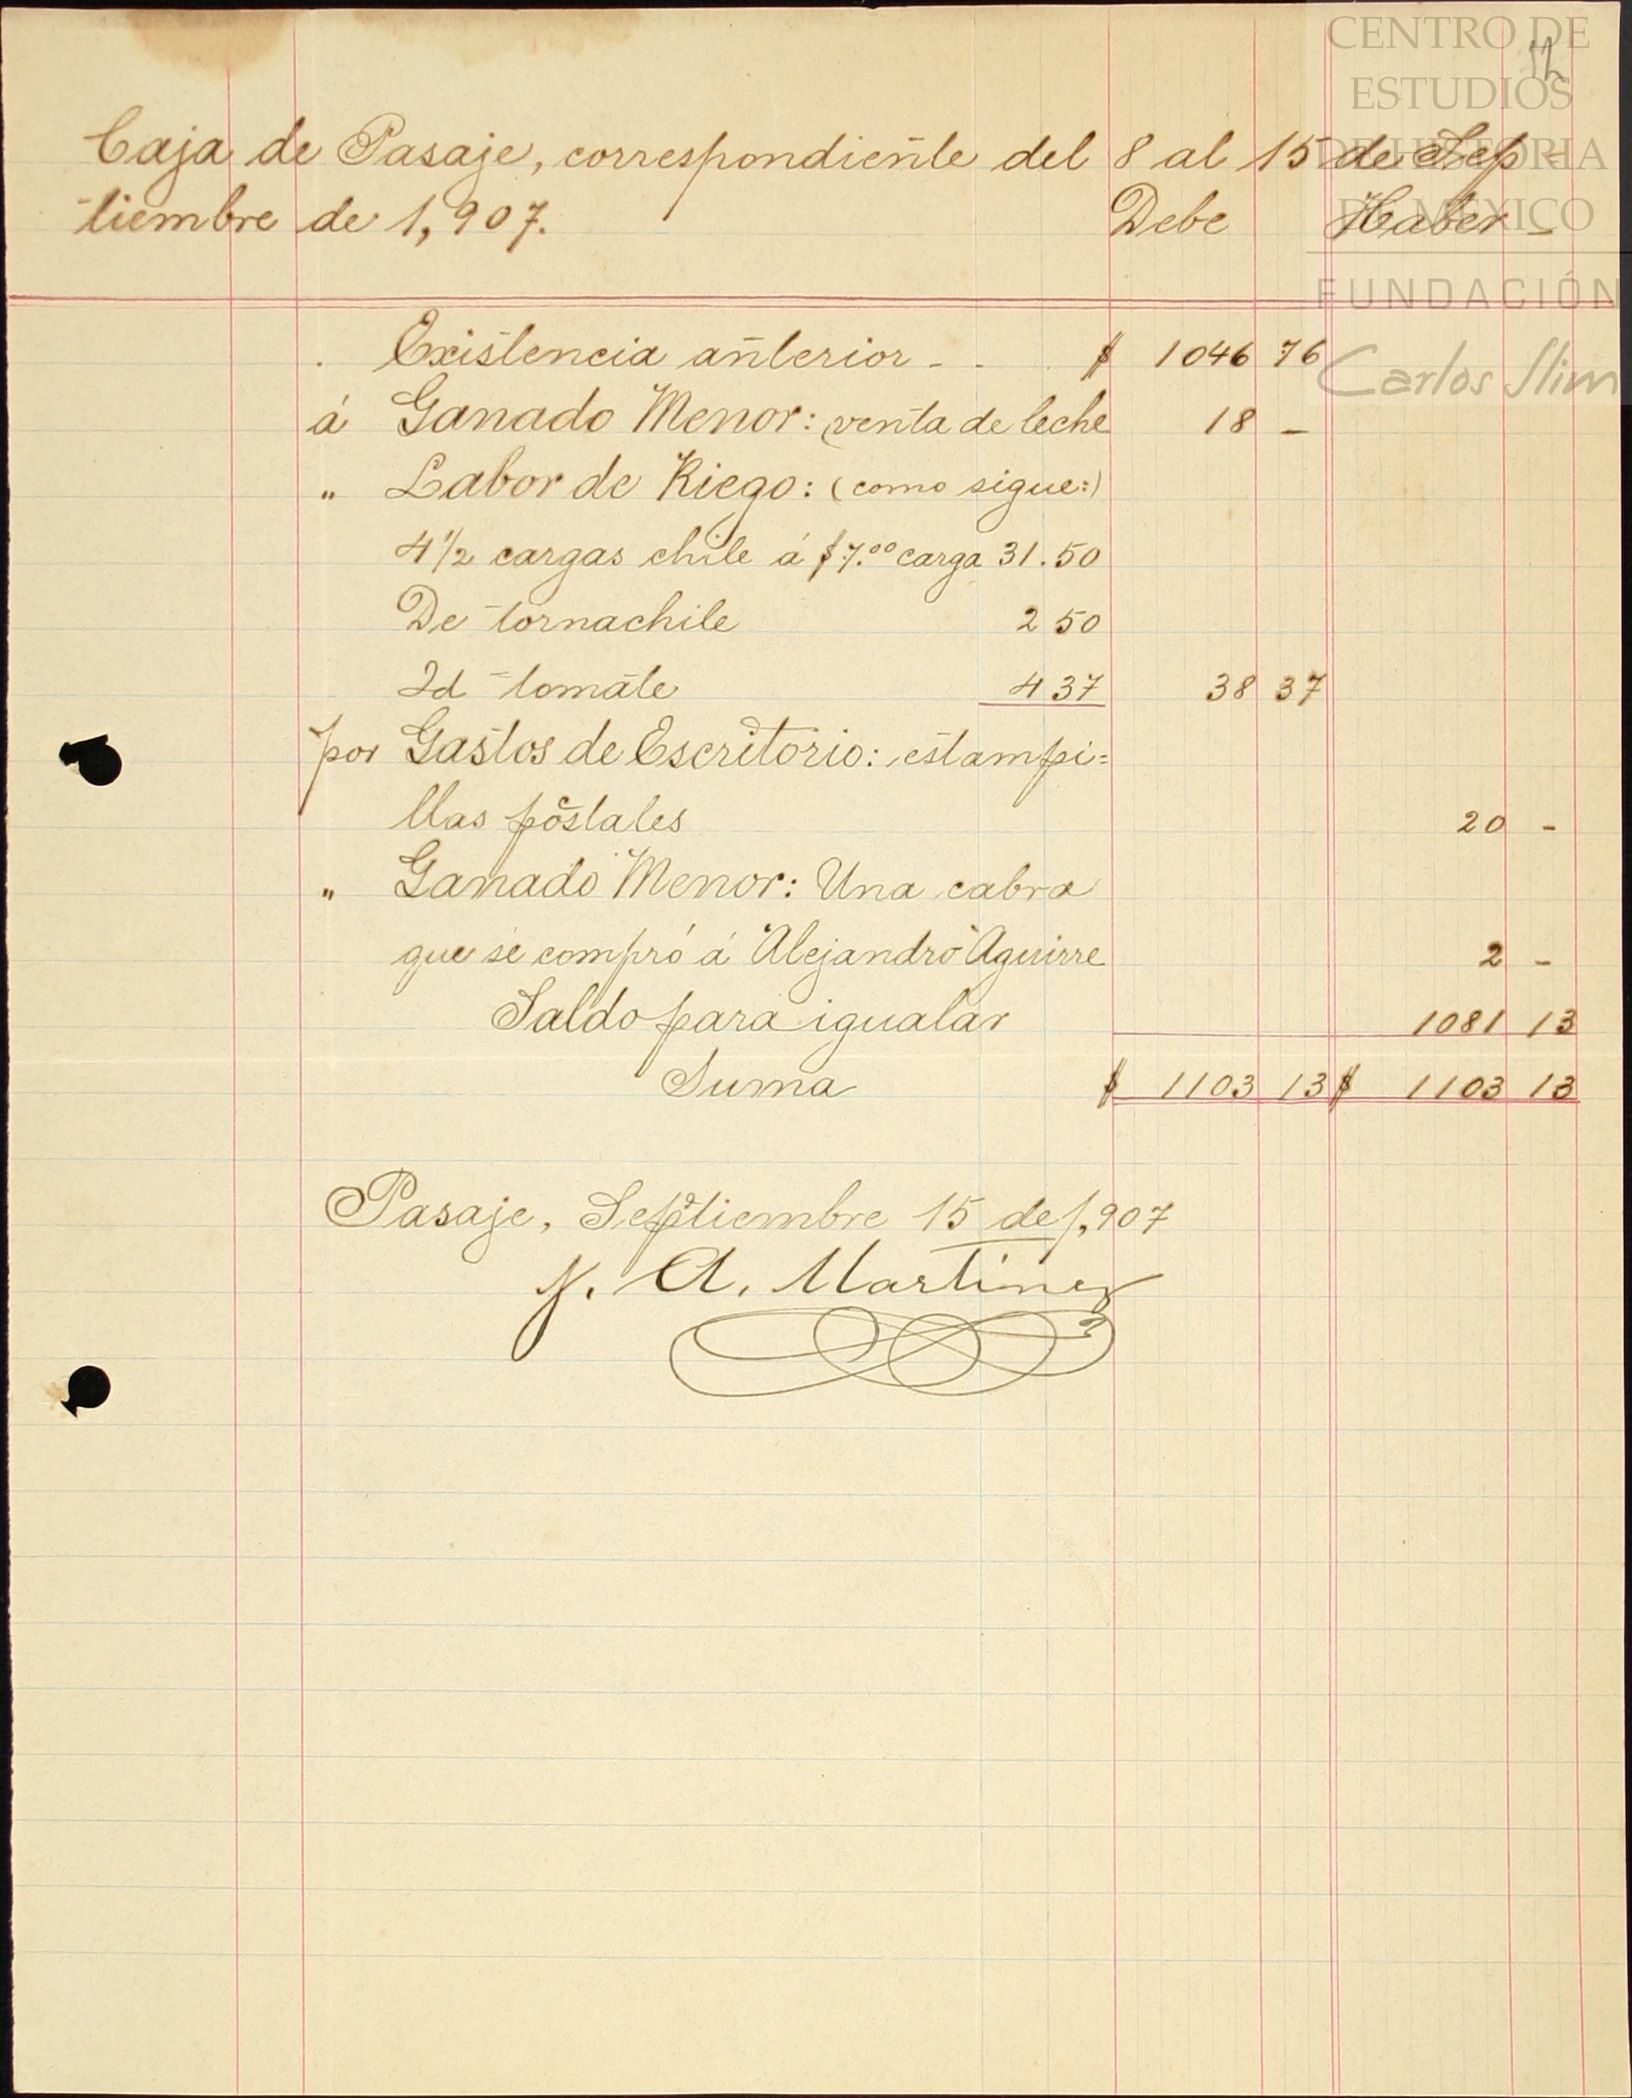 12
CENTRO DE
ESTUDIOS
DE HISTORIA
DE MÉXICO
FUNDACIÓN
Carlos Slim
Caja de Pasaje, correspondiente del 8 al 15 de Sep-
tiembre de 1,907. Debe Haber
Existencia anterior - - $ 1046 76
á Ganado Menor: venta de leche 18 -
" Labor de Riego: (como sigue:)
4 1/2 cargas chile á $7.00 carga 31.50
De tornachile 2 50
Id tomate 4 37 38 37
por Gastos de Escritorio: estampi=
llas postales 20 -
" Ganado Menor: Una cabra
que se compró á Alejandro Aguirre 2 -
Saldo para igualar 1081 13
Suma $ 1103 13 $ 1103 13
Pasaje, Septiembre 15 de 1,907
A. Martinez